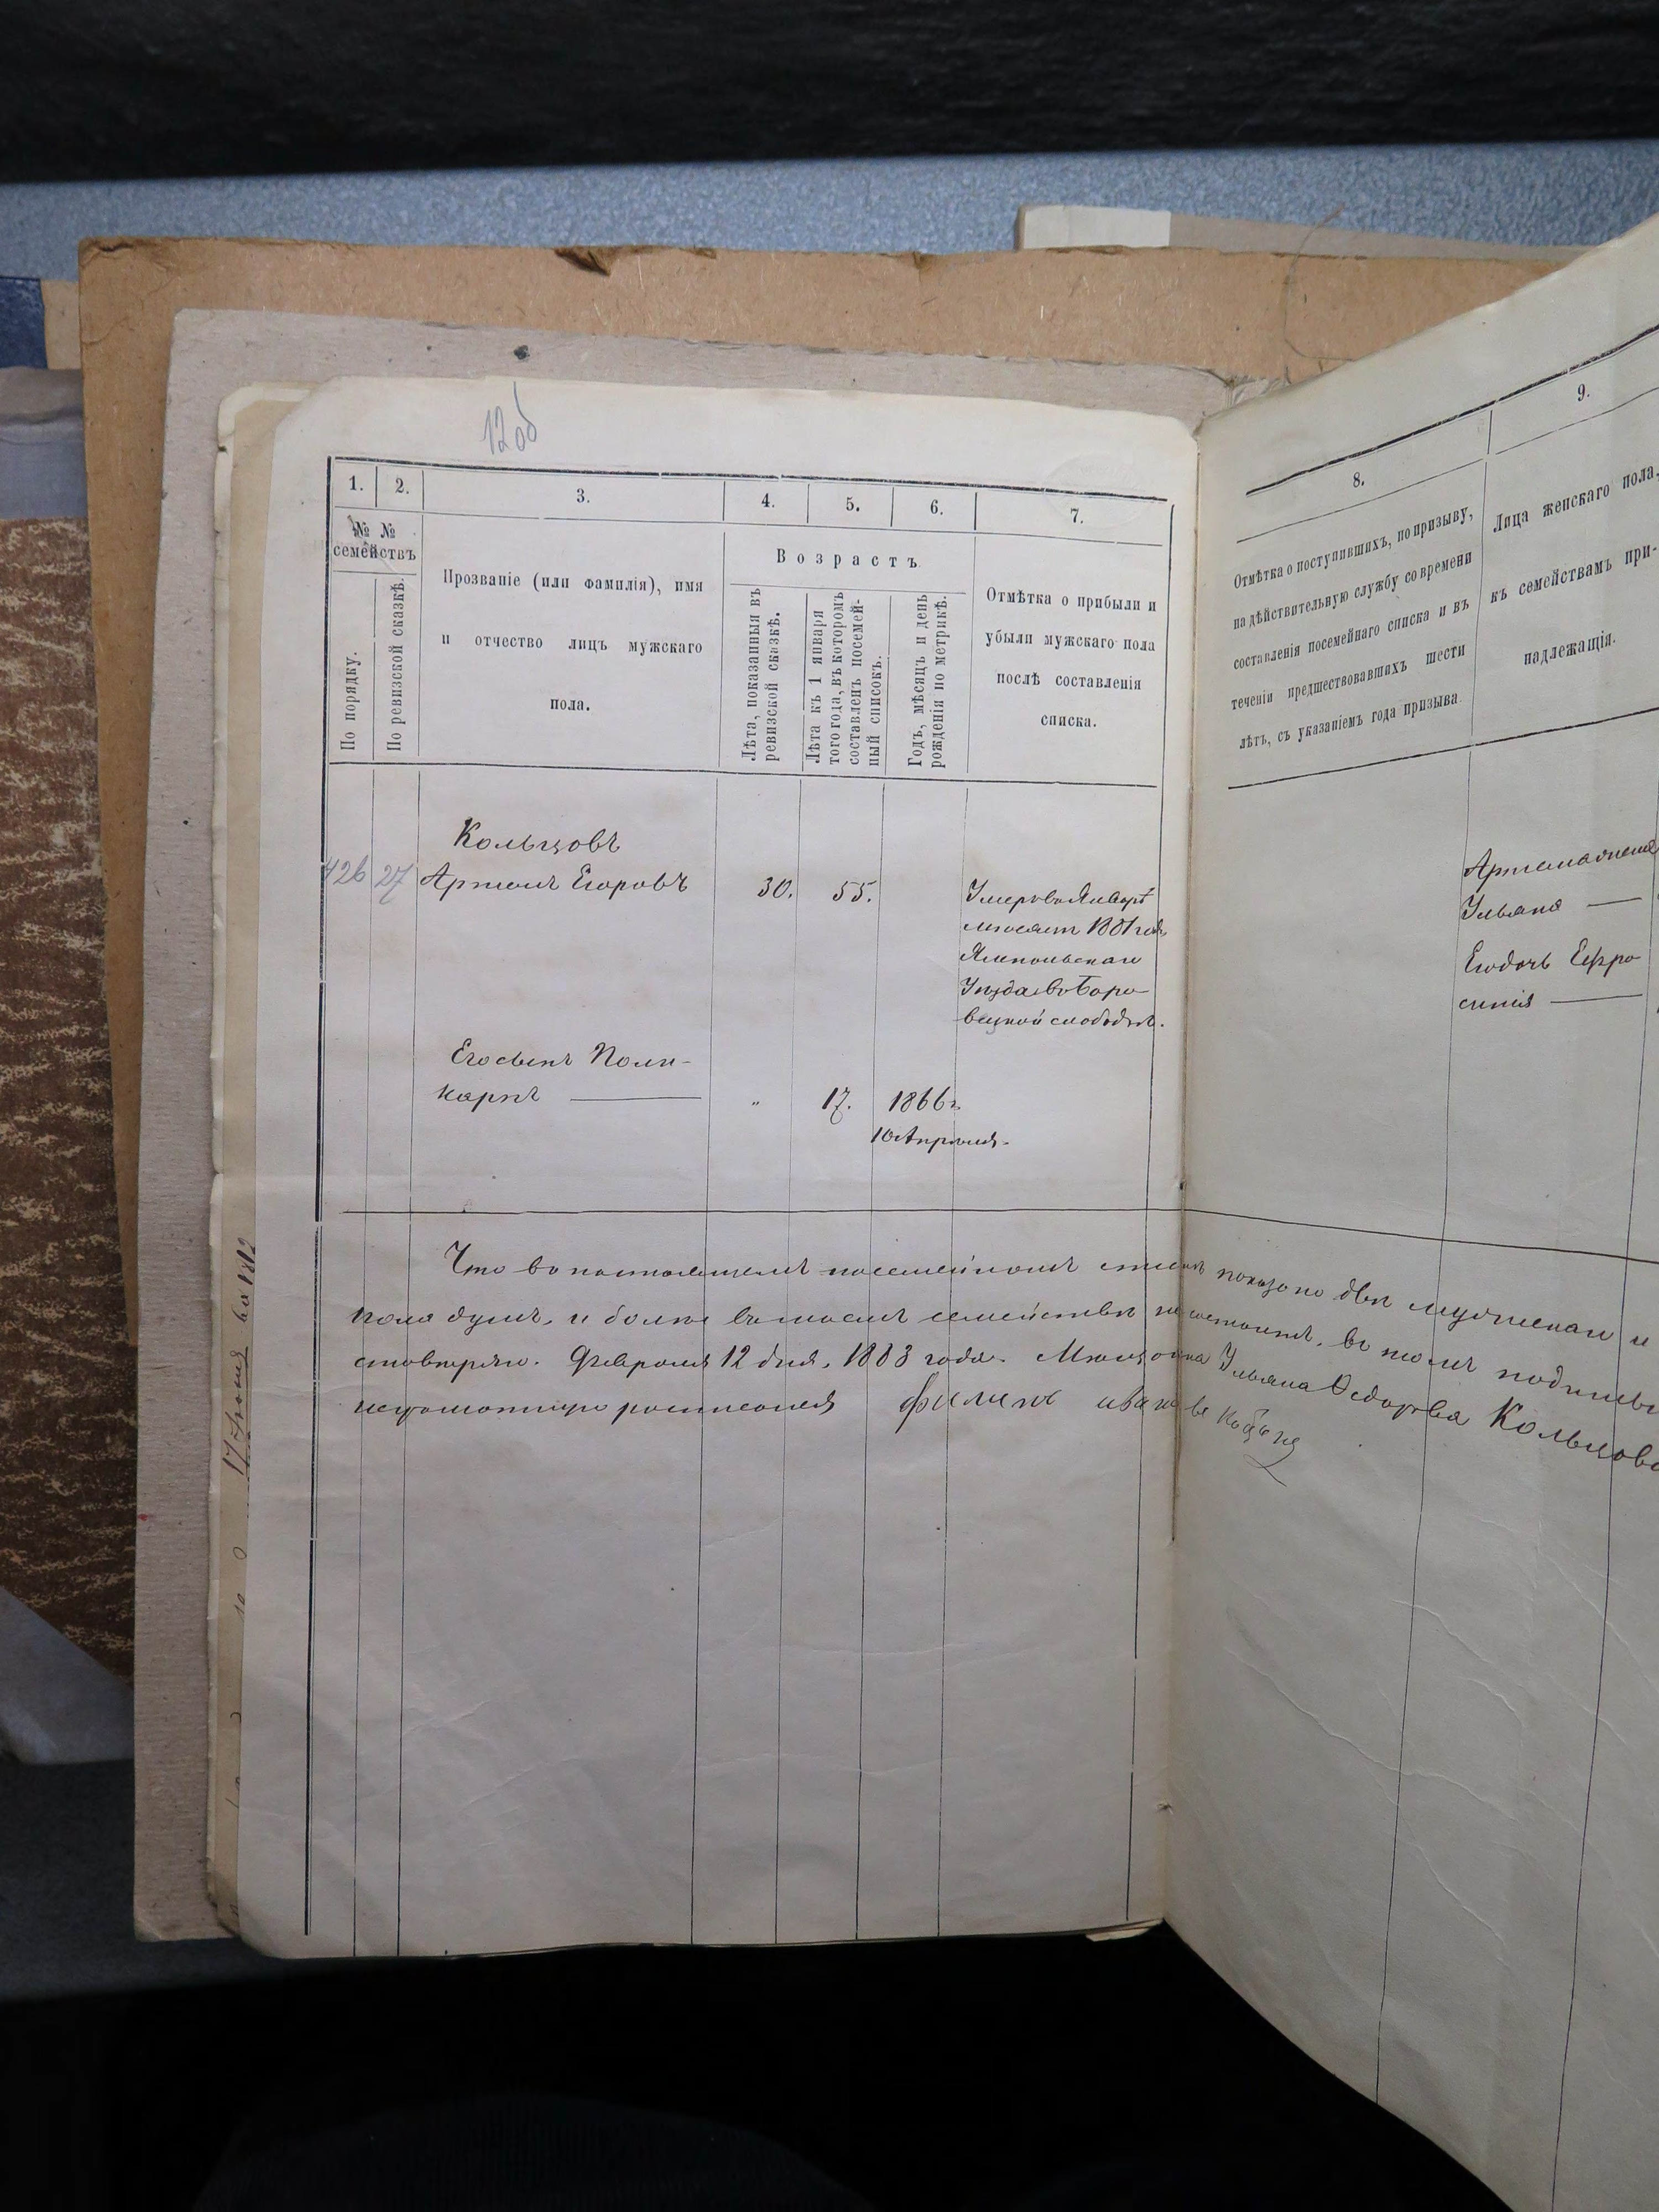 12об
1. 2. 3. 4. 5. 6. 7.
№ №
семействъ
По порядку.
По ревизской сказкѣ.
Прозваніе (или фамилія), имя
и отчество лицъ мужскаго
пола.
Возрастъ
Лѣта, показанныя въ
ревизской сказкѣ.
Лѣта къ 1 января
того года, въ которомъ
составленъ посемей-
ный списокъ.
Годъ, мѣсяцъ и день
рожденія по метрикѣ.
Отмѣтка о прибыли и
убыли мужскаго пола
послѣ составленія
списка.
Кольцовъ
426 27 Артемъ Егоровъ 30. 55.
Умеръ въ Январѣ
мѣсяцѣ 1881 года
Ямпольскаго
Уѣзда въ Боро-
вецкой слободѣ.
Его сынъ Поли-
карпъ — „ 17. 1866 г.
10 Апрѣля.
8. 9.
Отмѣтка о поступившихъ, по призыву,
на дѣйствительную службу со времени
составленія посемейнаго списка и въ
теченіи предшествовавшихъ шести
лѣтъ, съ указаніемъ года призыва.
Лица женскаго пола,
къ семействамъ при-
надлежащія.
Артема жена
Ульяна —
Его дочь Ефро-
синія —
Что въ настоящемъ посемейномъ спискѣ показано двѣ мужскаго
пола душъ, и болѣе въ моемъ семействѣ не состоитъ, въ томъ
Февраля 12 дня, 1883 года. Мѣщанка Ульяна Ѳедорова Кольцова
неграмотную росписался Филипъ Ивановъ
17 Іюня